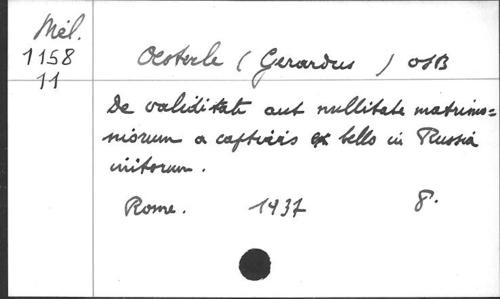 Mél.
1158
11
Oesterle (Gerardus) OSB
De validitate aut nullitate matrimo=
niorum a captivis ex bello in Russia
initorum.
Rome. 1937 8°.